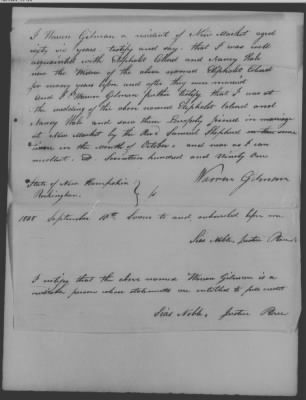 I Warren Gilman a resident of New Market aged
sixty six years, testify and say, that I was well
acquainted with Eliphalet Colord and Nancy Hale
now the Widow of the above named Eliphalet Colord
for many years before and after they were married
And I Warren Gilman further testify that I was at
the wedding of the above named Eliphalet Colord and
Nancy Hale and saw them lawfully joined in marriage
at New Market by the Revd Samuel Shepherd
in the Month of October, and near as I can
recollect, Seventeen hundred and Ninety One
Warren Gilman
State of New Hampshire
Rockingham. } ss
1838 September 10th Sworn to and subscribed before me
Sias Noble, Justice Peace
I certify that the above named Warren Gilman is a
credible person whose statements are entitled to full credit
Sias Noble, Justice Peace